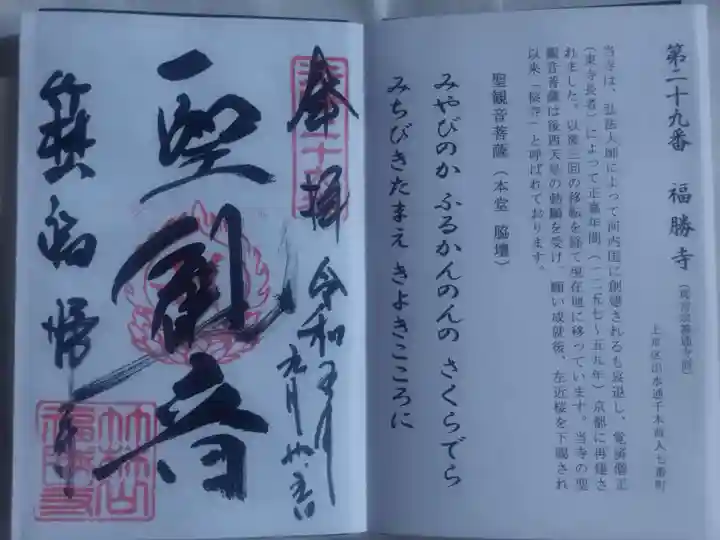 第二十九番 福勝寺（真言宗善通寺派）
上京区出水通千本西入七番町
当寺は、弘法大師によって河内国に創建されるも衰退し、覚済僧正
（東寺長者）によって正嘉年間（一二五七～五九年）京都に再建さ
れました。以後三回の移転を経て現在地に移っています。当寺の聖
観音菩薩は後西天皇の勅願を受け、願い成就後、左近桜を下賜され
以来「桜寺」と呼ばれております。
聖観音菩薩（本堂 脇壇）
みやびのか ふるかんのんの さくらでら
みちびきたまえ きよきこころに
奉拝 令和
聖観音
福勝寺